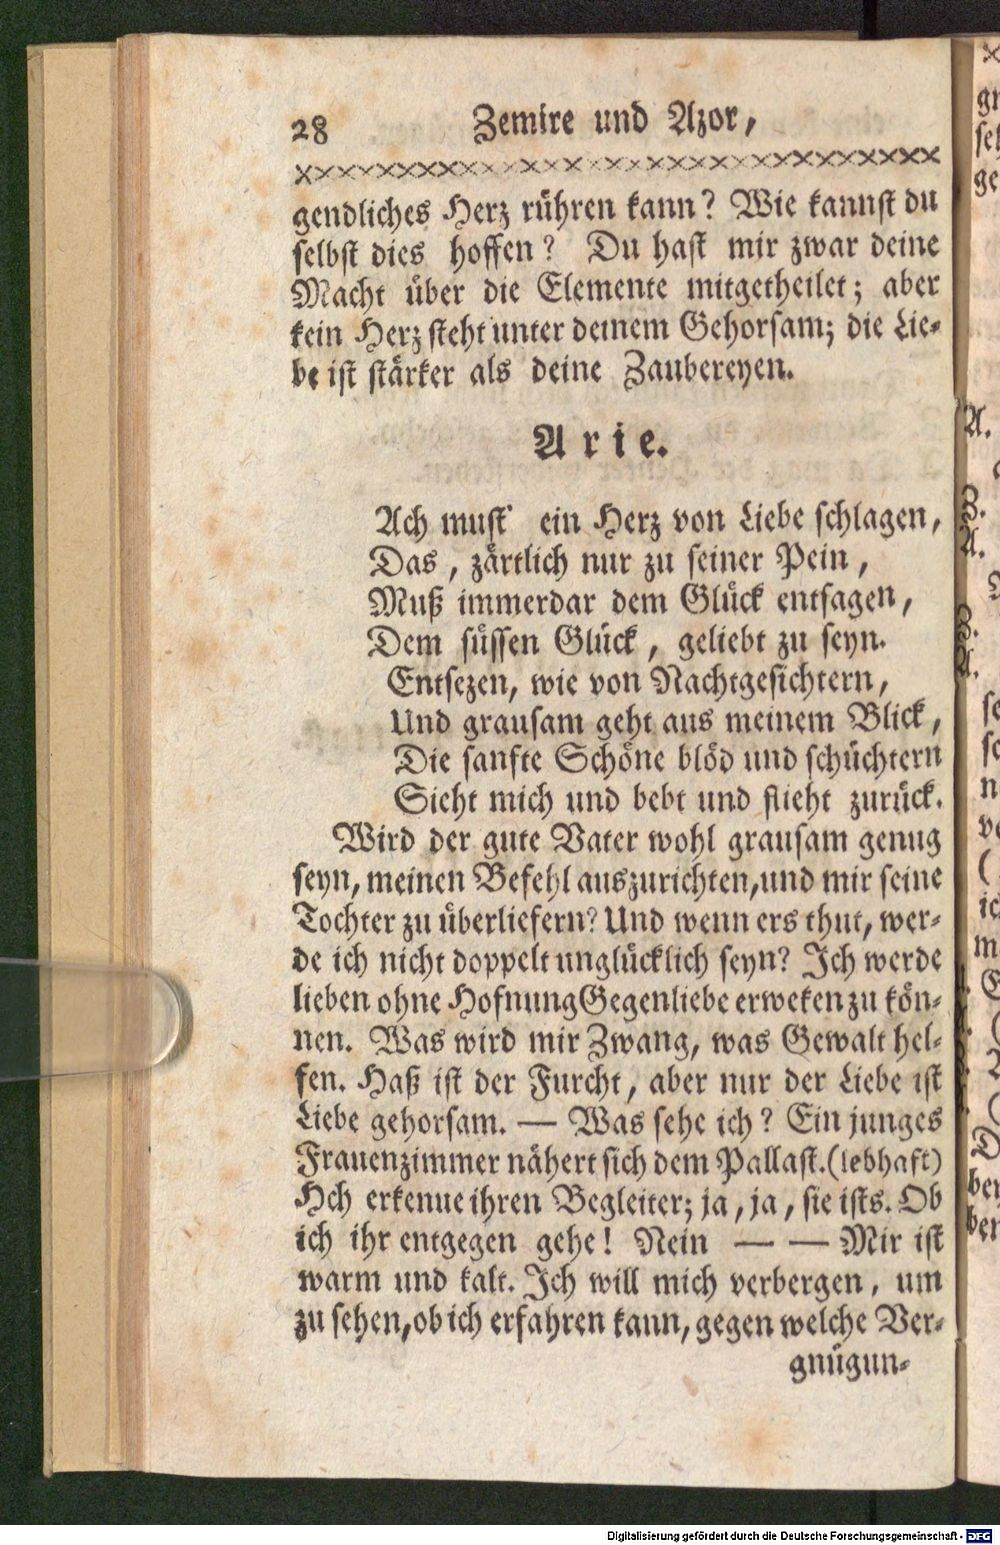 28 Zemire und Azor,
gendliches Herz rühren kann? Wie kannst du
selbst dies hoffen? Du hast mir zwar deine
Macht über die Elemente mitgetheilet; aber
kein Herz steht unter deinem Gehorsam; die Lie-
be ist stärker als deine Zaubereyen.
Arie.
Ach must ein Herz von Liebe schlagen,
Das, zärtlich nur zu seiner Pein,
Muß immerdar dem Glück entsagen,
Dem süssen Glück, geliebt zu seyn.
Entsezen, wie von Nachtgesichtern,
Und grausam geht aus meinem Blick,
Die sanfte Schöne blöd und schüchtern
Sieht mich und bebt und flieht zurück.
Wird der gute Vater wohl grausam genug
seyn, meinen Befehl auszurichten, und mir seine
Tochter zu überliefern? Und wenn ers thut, wer-
de ich nicht doppelt unglücklich seyn? Ich werde
lieben ohne Hofnung Gegenliebe erweken zu kön-
nen. Was wird mir Zwang, was Gewalt hel-
fen. Haß ist der Furcht, aber nur der Liebe ist
Liebe gehorsam. — Was sehe ich? Ein junges
Frauenzimmer nähert sich dem Pallast. (lebhaft)
Hch erkenne ihren Begleiter; ja, ja, sie ists. Ob
ich ihr entgegen gehe! Nein — — Mir ist
warm und kalt. Ich will mich verbergen, um
zu sehen, ob ich erfahren kann, gegen welche Ver-
gnügun-
Digitalisierung gefördert durch die Deutsche Forschungsgemeinschaft - DFG